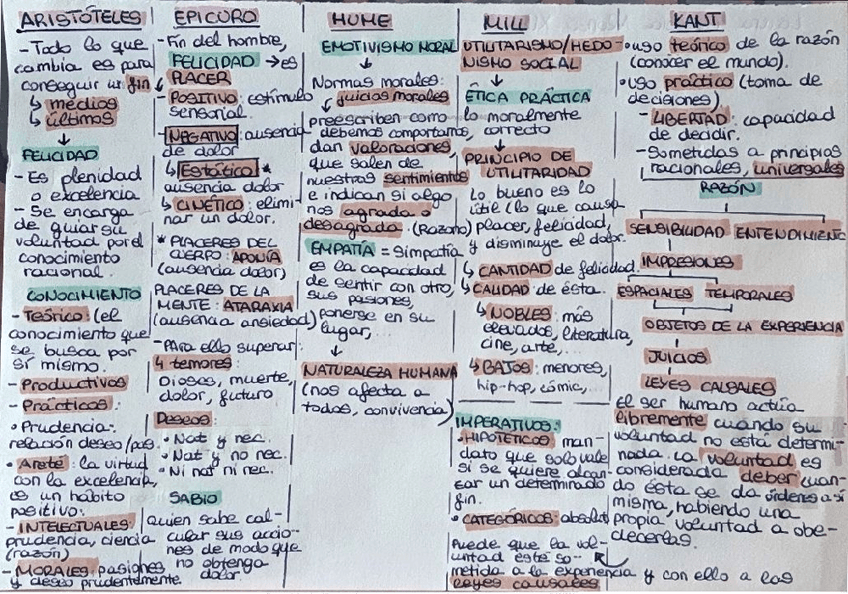 ARISTÓTELES
- Todo lo que
cambia es para
conseguir un fin
↳ medios
↳ últimos
↓
FELICIDAD
- Es plenidad
o excelencia
- Se encarga
de guiar su
voluntad por el
conocimiento
racional.
CONOCIMIENTO
- Teórico: (el
conocimiento que
se busca por
sí mismo.
- Productivos
- Prácticos:
• Prudencia:
relación deseo/pas.
• Areté: la virtud
con la excelencia,
es un hábito
positivo:
- INTELECTUALES:
prudencia, ciencia
(razón)
- MORALES: pasiones
y deseo prudentemente
EPICURO
- Fin del hombre,
FELICIDAD → es
↓ PLACER
- POSITIVO: estímulo
sensorial.
- NEGATIVO: ausencia
de dolor
↳ Estático *
ausencia dolor
↳ CINÉTICO: elimi-
nar un dolor.
* PLACERES DEL
CUERPO: APONÍA
(ausencia dolor)
PLACERES DE LA
MENTE: ATARAXIA
(ausencia ansiedad)
- Para ello superar:
4 temores:
Dioses, muerte,
dolor, futuro
Deseos:
• Nat y nec.
• Nat y no nec.
• Ni nat ni nec.
SABIO
quien sabe cal-
cular sus accio-
nes de modo que
no obtenga
dolor.
HUME
EMOTIVISMO MORAL
↓
Normas morales:
↙ juicios morales
preescriben como
debemos comportarnos,
dan valoraciones
que salen de
nuestros sentimientos
e indican si algo
nos agrada o
desagrada. (Razona)
EMPATÍA = Simpatía
es la capacidad
de sentir con otro,
sus pasiones,
ponerse en su
lugar,...
↓
NATURALEZA HUMANA
(nos afecta a
todos, convivencia)
MILL
UTILITARISMO/HEDO
NISMO SOCIAL
↓
ÉTICA PRÁCTICA
lo moralmente
correcto
↓
PRINCIPIO DE
UTILITARIDAD
Lo bueno es lo
útil (lo que causa
placer, felicidad,
y disminuye el dolor.
↳ CANTIDAD de felicidad
↳ CALIDAD de ésta.
↳ NOBLES: más
elevados, literatura,
cine, arte,...
↳ BAJOS: menores,
hip-hop, cómic,...
IMPERATIVOS:
• HIPOTÉTICOS man-
dato que solo vale
si se quiere alcan-
zar un determinado
fin.
• CATEGÓRICOS: absolut
Puede que la vol-
untad esté so-
metida a la experiencia y con ello a las
leyes causales
KANT
• uso teórico de la razón
(conocer el mundo).
• uso práctico (toma de
decisiones)
- LIBERTAD: capacidad
de decidir.
- Sometidas a principios
racionales, universales
RAZÓN
SENSIBILIDAD ENTENDIMIENTO
IMPRESIONES
ESPACIALES TEMPORALES
OBJETOS DE LA EXPERIENCIA
JUICIOS
LEYES CAUSALES
El ser humano actúa
libremente cuando su
voluntad no está determi-
nada. La voluntad es
considerada deber cuan-
do ésta se da órdenes a sí
misma, habiendo una
propia voluntad a obe-
decerlas.